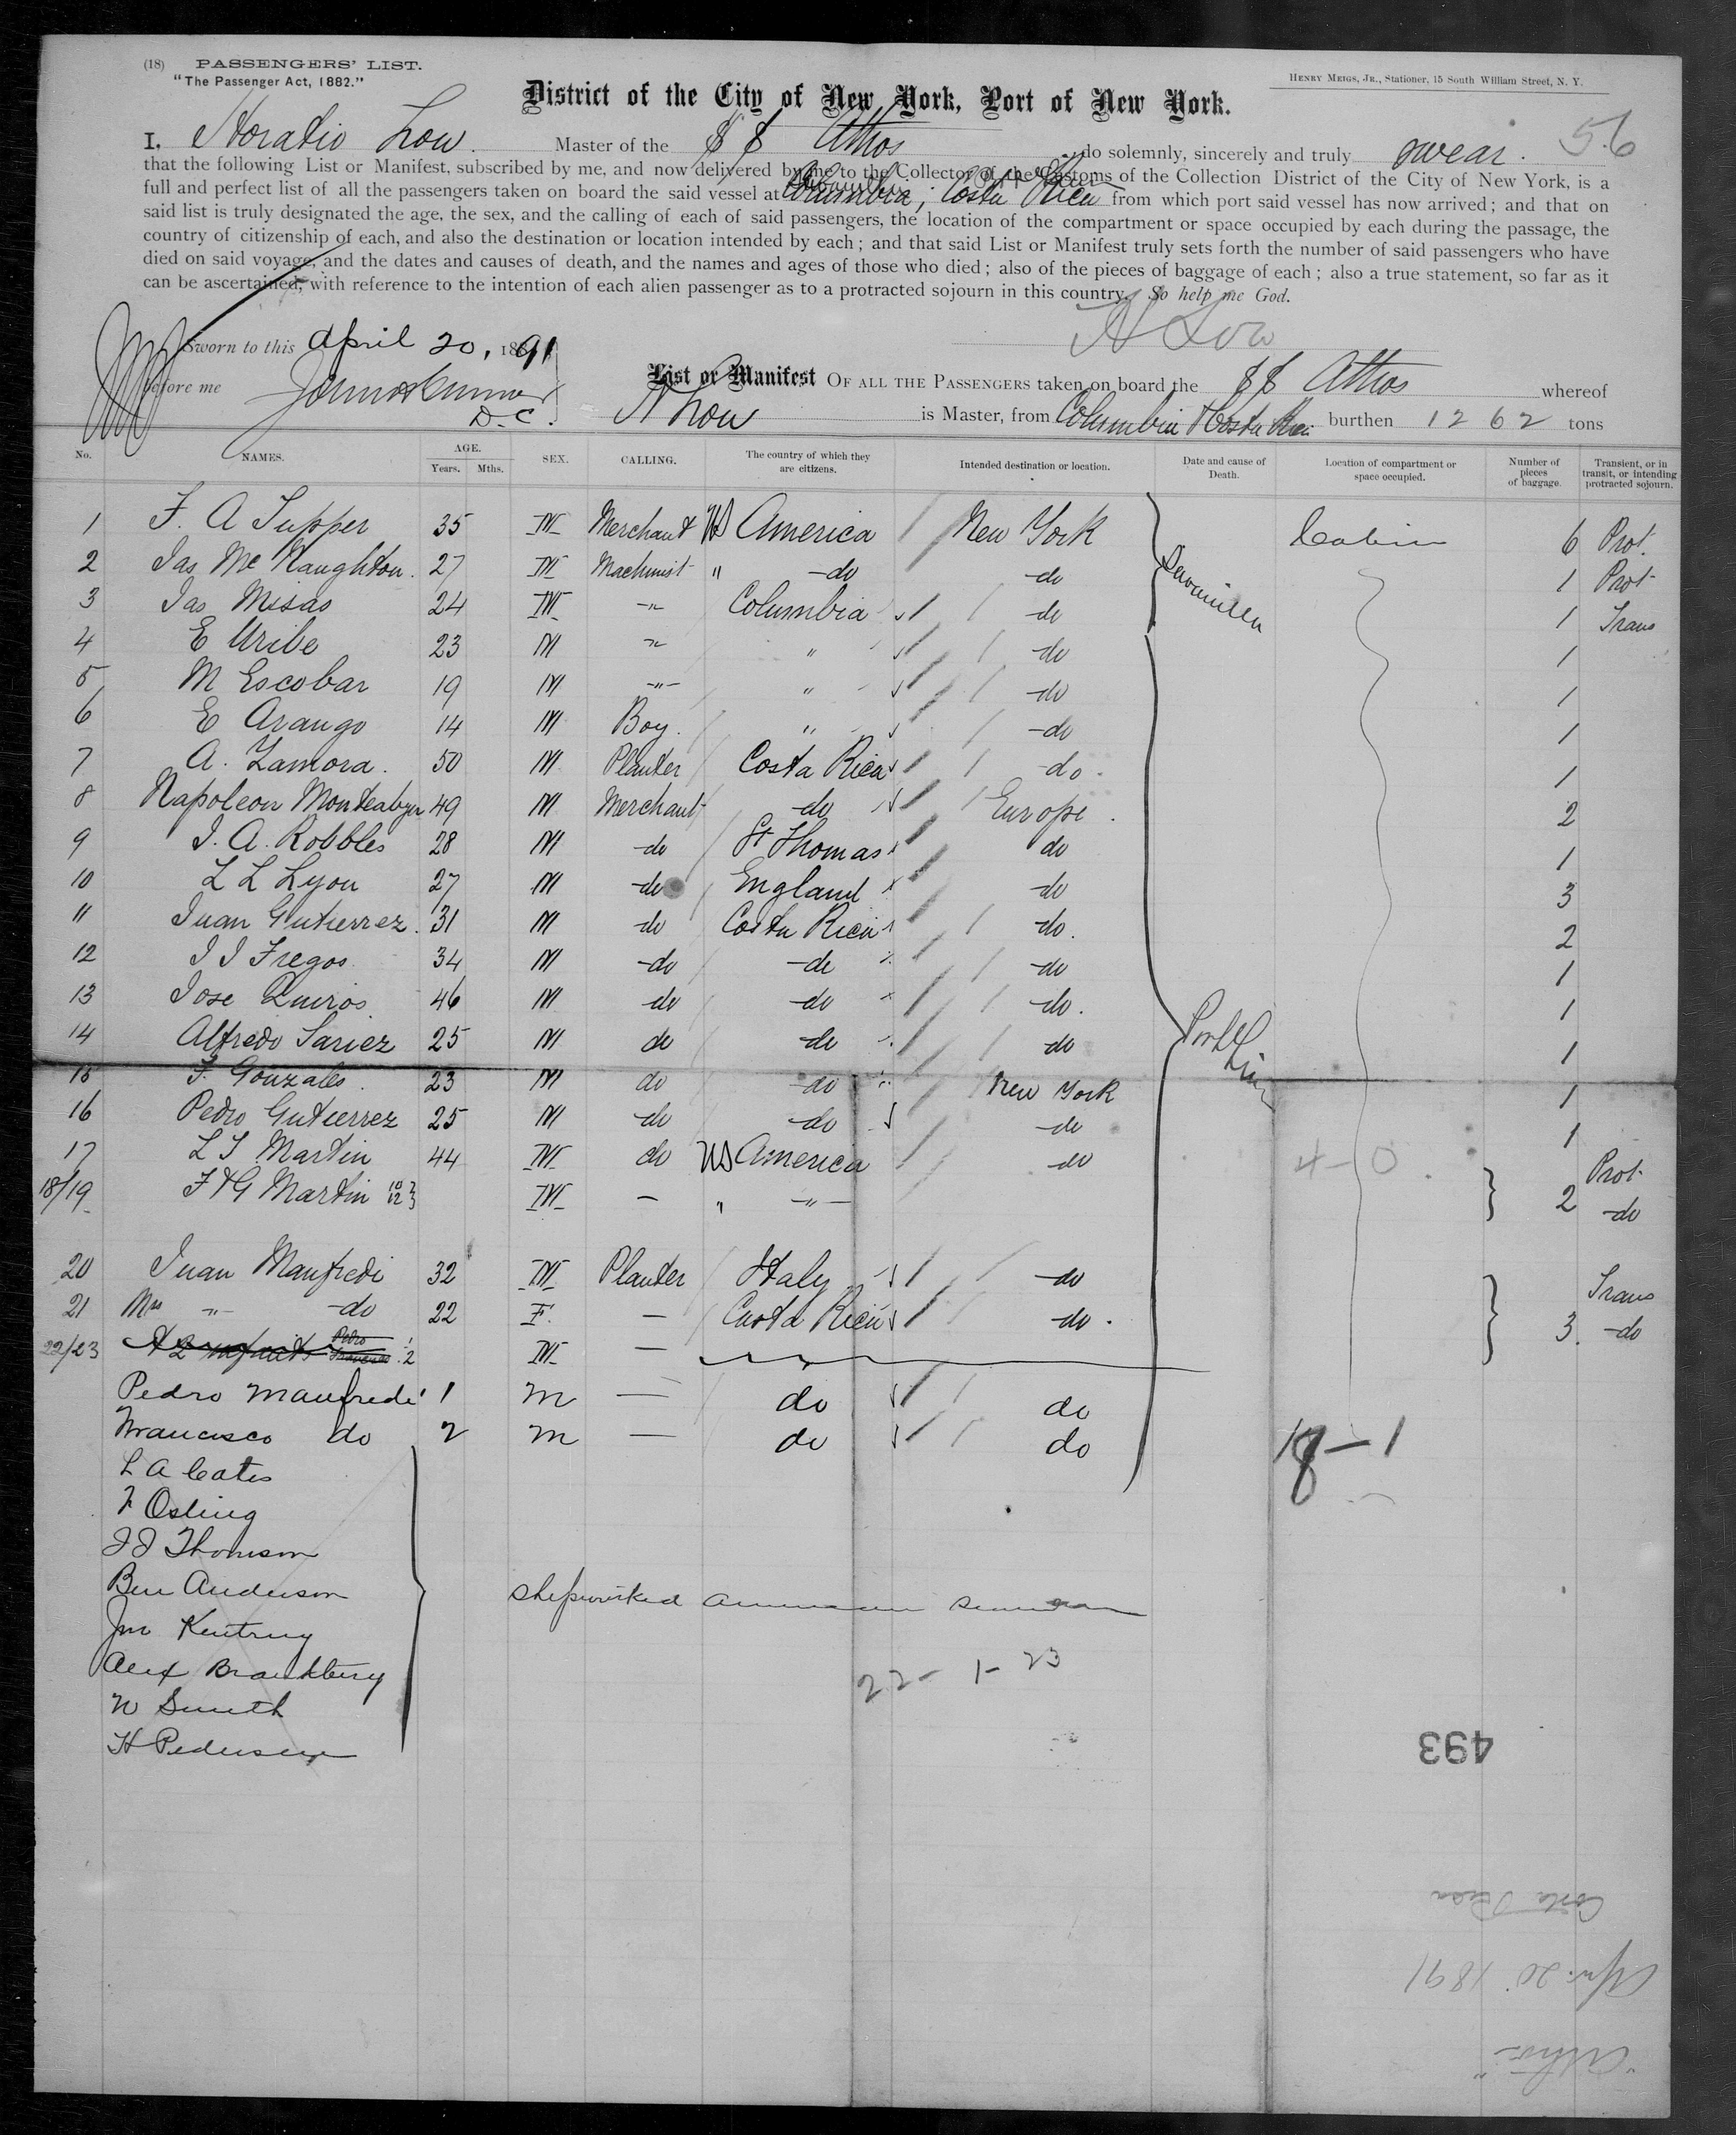 (18) PASSENGERS' LIST.
"The Passenger Act, 1882."
HENRY MEIGS, JR., Stationer, 15 South William Street, N. Y.
District of the City of New York, Port of New York.
56
I, Horatio Low Master of the SS Athos do solemnly, sincerely and truly swear.
that the following List or Manifest, subscribed by me, and now delivered by me to the Collector of the Customs of the Collection District of the City of New York, is a
full and perfect list of all the passengers taken on board the said vessel at Columbia, Costa Rica from which port said vessel has now arrived; and that on
said list is truly designated the age, the sex, and the calling of each of said passengers, the location of the compartment or space occupied by each during the passage, the
country of citizenship of each, and also the destination or location intended by each; and that said List or Manifest truly sets forth the number of said passengers who have
died on said voyage, and the dates and causes of death, and the names and ages of those who died; also of the pieces of baggage of each; also a true statement, so far as it
can be ascertained, with reference to the intention of each alien passenger as to a protracted sojourn in this country. So help me God.
H Low
Sworn to this April 20, 1891
before me
D.C.
List or Manifest OF ALL THE PASSENGERS taken on board the SS Athos whereof
H Low is Master, from Columbia & Costa Rica burthen 1262 tons
No. NAMES. AGE. Years. Mths. SEX. CALLING. The country of which they are citizens. Intended destination or location. Date and cause of Death. Location of compartment or space occupied. Number of pieces of baggage. Transient, or in transit, or intending protracted sojourn.
1 F. A Tupper 35 M Merchant US America New York Cabin 6 Prot.
2 Jas McNaughton 27 M Machinist " -do -do 1 Prot
3 Jas Misas 24 M -"- Columbia do 1 Trans
Savanilla
4 E Uribe 23 M -"- " -do 1
5 M Escobar 19 M -"- " -do 1
6 E Arango 14 M Boy. " -do 1
7 A. Zamora 50 M Planter Costa Rica -do. 1
8 Napoleon 49 M Merchant -do Europe. 2
9 J. A. Robbles 28 M -do St Thomas do 1
10 L L Lyon 27 M -do England -do 3
11 Juan Gutierrez 31 M do Costa Rica do. 2
12 J J Fregos 34 M -do -do -do 1
13 Jose Quiros 46 M do -do -do. 1
14 Alfredo 25 M do -do do 1
Port Limon
15 F. Gonzales 23 M do -do New York 1
16 Pedro Gutierrez 25 M -do -do -do 1
17 L J Martin 44 M do US America -do Prot
4-0
18/19 F & G Martin 10 12 M - " -"- 2 -do
20 Juan Manfredi 32 M Planter Italy -do Trans
21 Mrs -"- -do 22 F. - Costa Rica do. 3. -do
22/23 & 2 infants Pedro 1 Francisco 2 M -
Pedro Manfredi 1 M - do do
Francisco do 2 M - do do
18-1
L A Cates
F Osling
J J Thomson
Ben Anderson
shipwrecked American seamen
Jno
Alex
W Smith
H Pedersen
22-1-23
493
Costa Rica
Apr. 20 1891
"Athos"